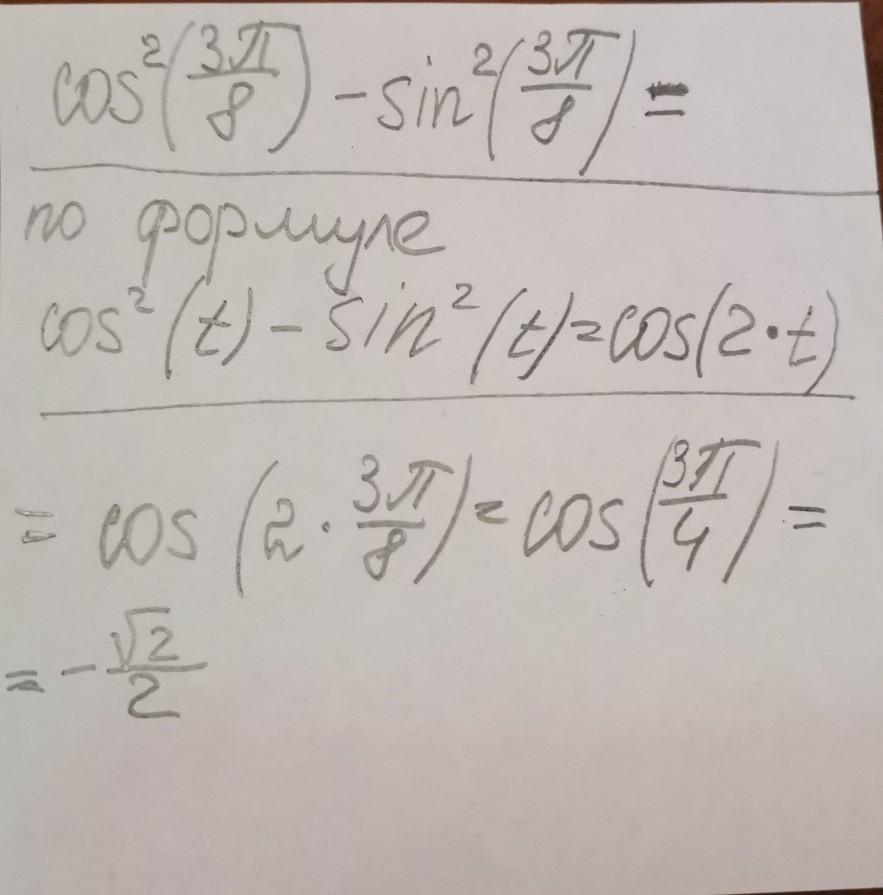 cos²(3π/8) - sin²(3π/8) =
по формуле
cos²(t) - sin²(t) = cos(2·t)
= cos(2·3π/8) = cos(3π/4) =
= -√2/2